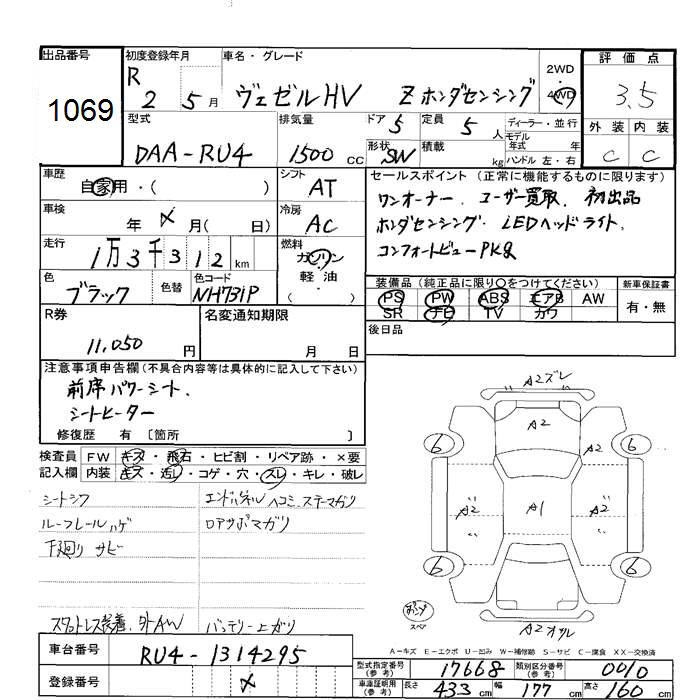 出品番号
1069
初度登録年月
R 2 5月
車名・グレード
ヴェゼルHV Zホンダセンシング
2WD
4WD
評価点
3.5
外装 内装
C C
型式
DAA-RU4
排気量
1500 cc
ドア 5
定員 5 人
形状 SW
積載 kg
ディーラー・並行
モデル
年式 年
ハンドル 左・右
車歴
自家用・( )
シフト
AT
車検
年 メ 月( 日)
冷房
AC
走行
1万3千312 km
燃料
ガソリン
軽油
( )
色
ブラック
色替
色コード
NH731P
セールスポイント(正常に機能するものに限ります)
ワンオーナー、ユーザー買取、初出品
ホンダセンシング・LEDヘッドライト、
コンフォートビューPKG
装備品(純正品に限り○をつけてください)
PS PW ABS エアB AW
SR ナビ TV カワ
新車保証書
有・無
後日品
R券
11,050 円
名変通知期限
月 日
注意事項申告欄(不具合内容等は具体的に記入して下さい)
前席パワーシート、
シートヒーター
修復歴 有 〔箇所 〕
検査員 FW キズ・飛石・ヒビ割・リペア跡・×要
記入欄 内装 キズ・汚レ・コゲ・穴・スレ・キレ・破レ
シートシワ
ルーフレールハゲ
下廻りサビ
スタットレス装着、外AW
エンドパネルヘコミ、ステーマガリ
ロアサポマガリ
バッテリー上ガリ
A2ズレ
A2
A2
6 6
A2 A1 A2
6 6
スペア
A2オサレ
A-キズ E-エクボ U-凹み W-補修跡 S-サビ C-腐食 XX-交換済
車台番号
RU4-1314295
登録番号
メ
型式指定番号
(参考)
17668
類別区分番号
(参考)
0010
車庫証明用
(参考)
長さ 433 cm
幅 177 cm
高さ 160 cm